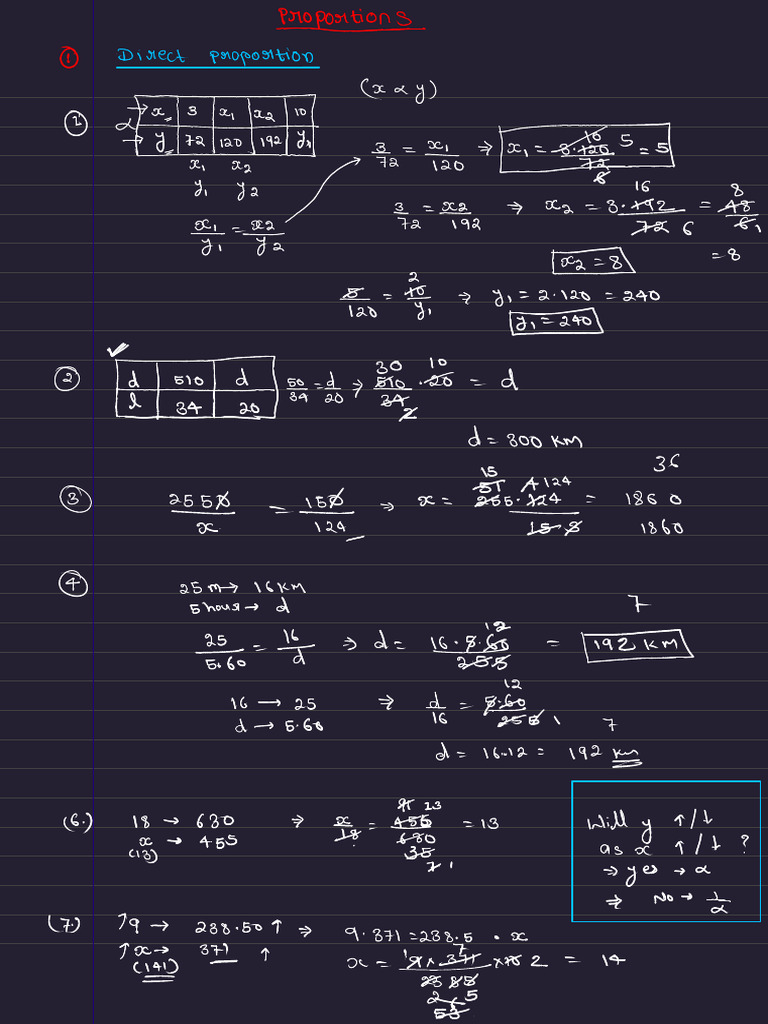 Proportions
① Direct proportion
(x ∝ y)
① ∝ → x 3 x₁ x₂ 10
→ y 72 120 192 y₁
x₁ x₂
y₁ y₂
x₁/y₁ = x₂/y₂
3/72 = x₁/120 ⇒ x₁ = 3·120/72 = 5
10 5
6
3/72 = x₂/192 ⇒ x₂ = 3·192/72 = 48/6 = 8
16 8
6 1
x₂ = 8
5/120 = 10/y₁ ⇒ y₁ = 2·120 = 240
2
y₁ = 240
② d 510 d
l 34 20
50/34 = d/20 ⇒ 510/34 · 20 = d
30 10
2
d = 300 KM
36
③ 2550/x = 150/124 ⇒ x = 255·124/15 = 1860
15
51 124
1860
④ 25m → 16KM
5 hour → d
7
25/5.60 = 16/d ⇒ d = 16·5.60/255 = 192 KM
12
16 → 25 ⇒ d/16 = 5.60/255
d → 5.60
12
1
7
d = 16·12 = 192 km
(6.) 18 → 630 ⇒ x/18 = 455/630 = 13
x → 455
(13)
91 13
35
7 1
Will y ↑/↓
as x ↑/↓ ?
⇒ yes → ∝
⇒ No → 1/∝
(7.) ↑9 → 238.50 ↑ ⇒ 9·371 = 238.5 · x
↑x → 371 ↑
(141)
x = 9 × 371 × 10 2 = 14
1 7
2385
265
53